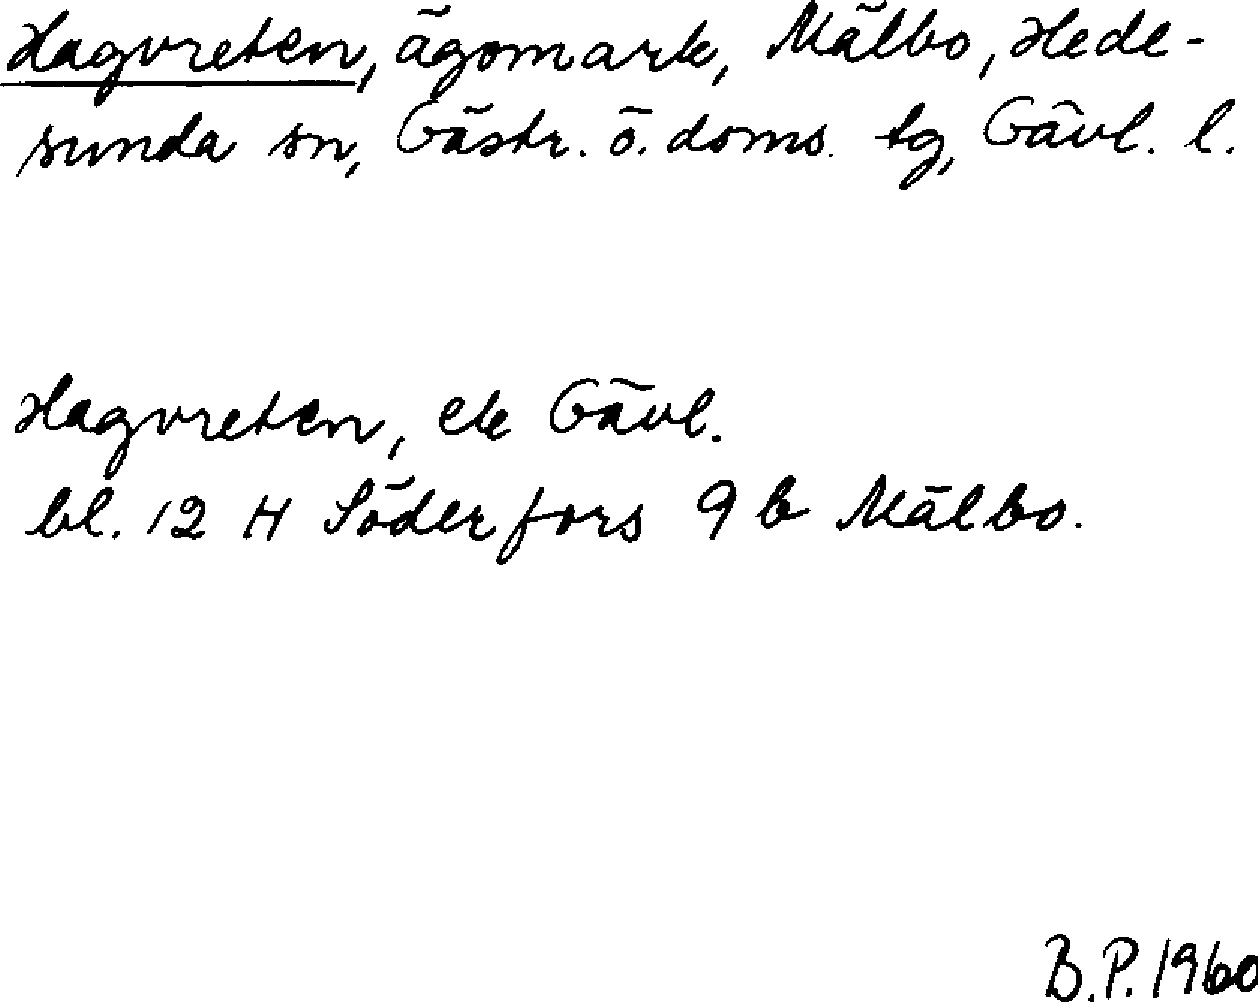 Hagvreten, ägomark, Mälbo, Hede-
sunda sn, Gästr. ö. doms. tg, Gävl. l.
Hagvreten, ek Gävl.
bl. 12 H Söderfors 9 b Mälbo.
B.P. 1960